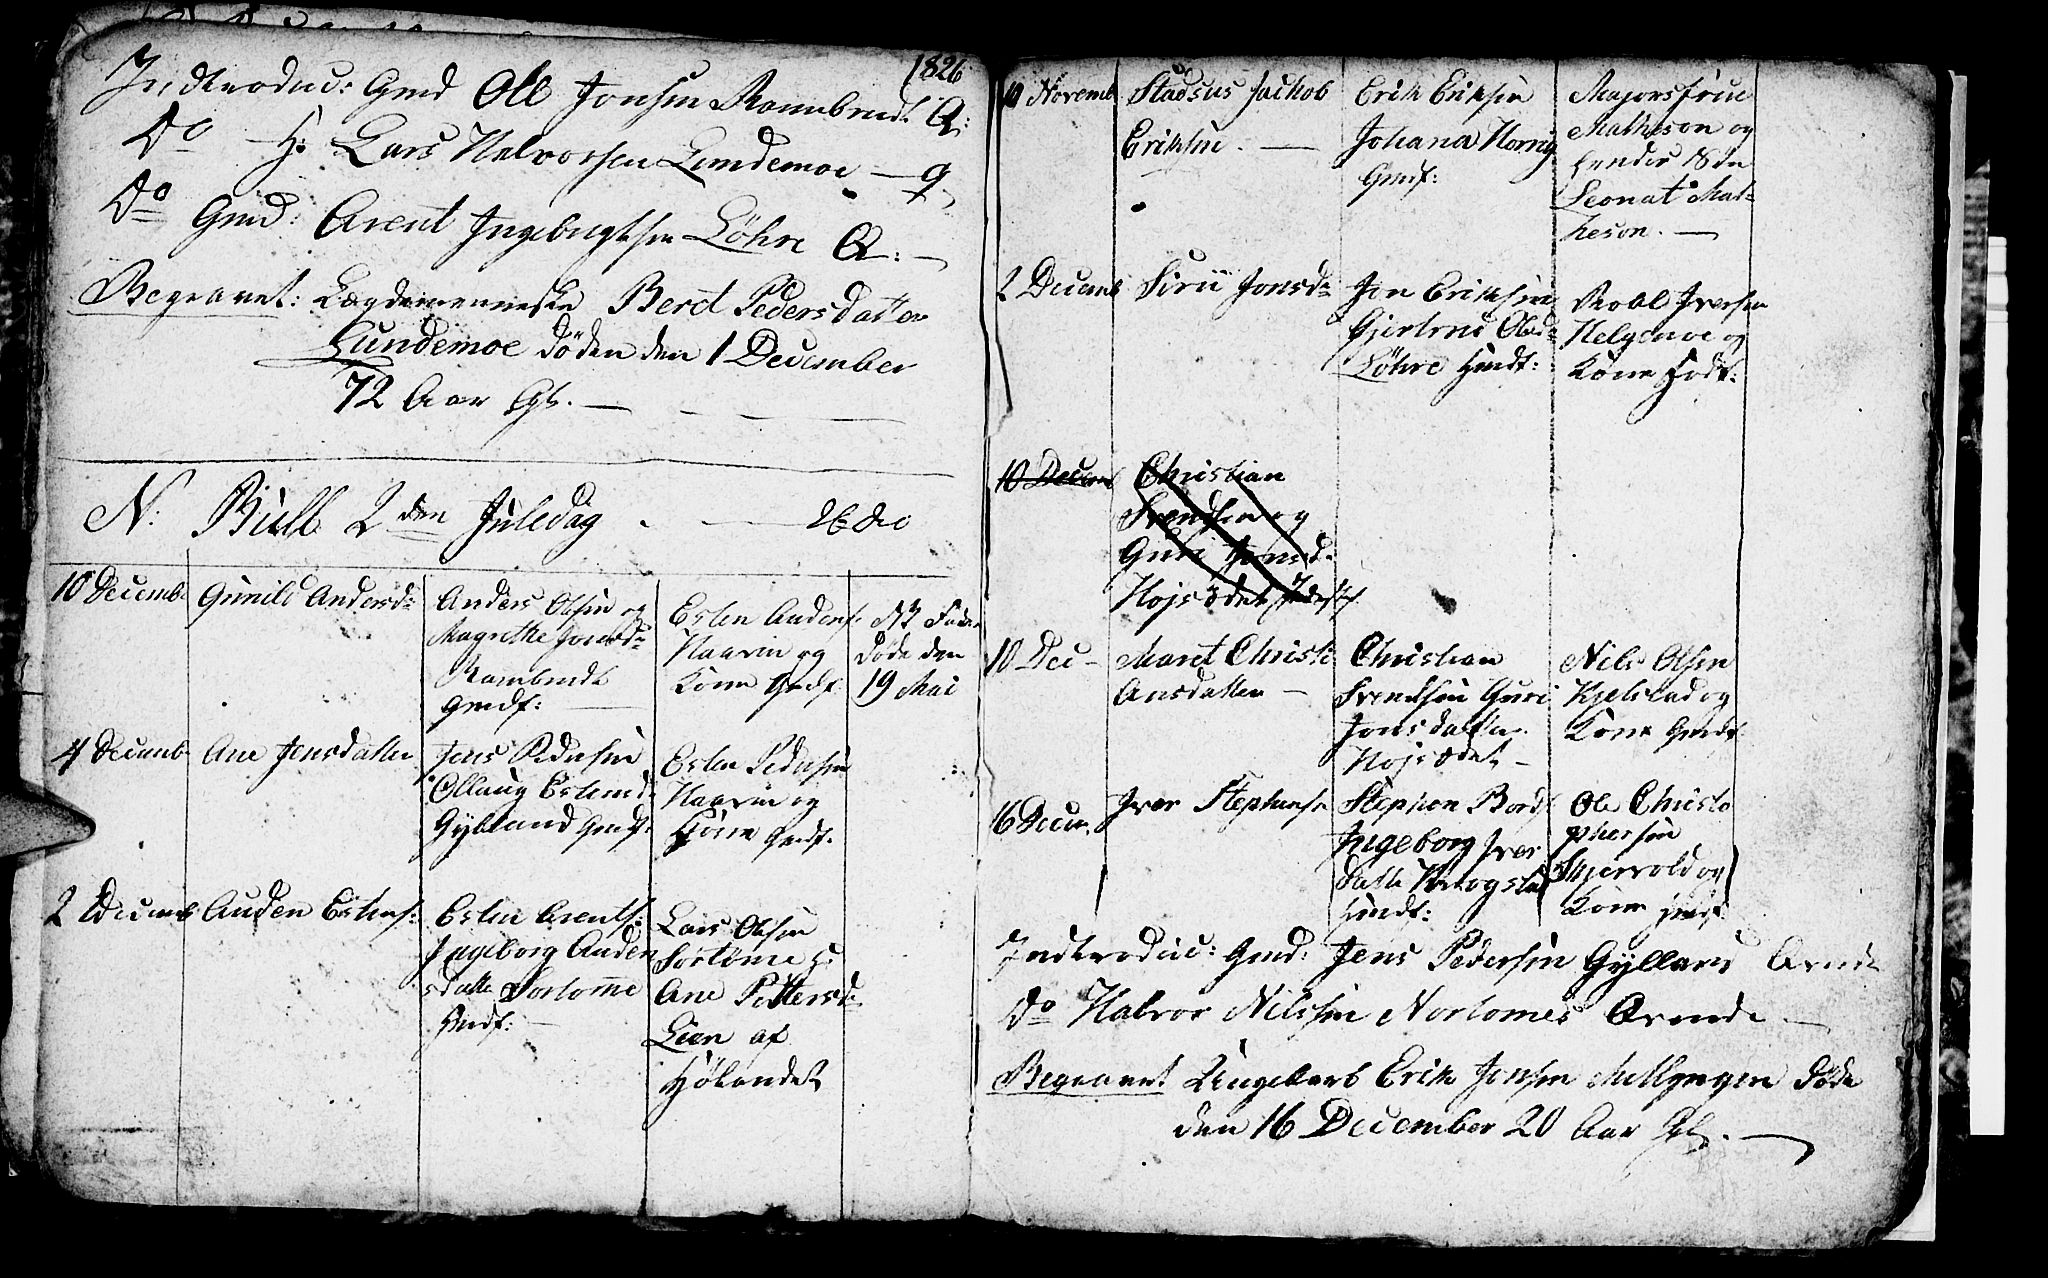 1826
Indtroduc: Gmd Ole Jonsen Rambrudt Q:
Do H: Lars Halvorsen Lundemoe — Q
Do Gmd: Arent Ingebrigtsen Löhre Q: —
Begravet: Lægdemenneske Beret Pedersdatter
Lundemoe döde den 1 December
72 Aar Gl. —
N: Büll 2den Juledag
10 Decembr
Gunild Andersd:
Anders Olsen og
Magrethe Jonsd:
Rambrudt
Gmdf:
Esten Andersf:
Haarin og
Kone Gmdf:
NB Fader
döde den
19 Mai
4 Decemb
Ane Jensdatter
Jens Pedersen
Ollaug Estensd:
Gylland Gmdf:
Esten Pedersen
Haarin og
Kone Gmdf:
2 Decemb
Auden Estens:
Esten Arents:
Ingeborg Auden
sdatte Sortome
Hmdf:
Lars Olsen
Sortome H:
Ane Pettersd:
Lien af
Hölandet
10 Novemb
Stadsus Jackob
Eriksen. —
Erik Eriksen
Johana Hornig
Gmdf:
Majorsfrue
Matheson og
hendes Sön
Leonat Mat=
heson. —
2 Decemb
Sirii Jonsd:
Jon Eriksen
Gjertrud Olsd:
Löhre Hmdf:
Roald Iversen
Helgemoe og
Kone Hmdf:
10 Decemb
Christian
Svendsen og
Guri Jonsd:
Hojsödet
10 Dec —
Maret Christi
Ansdatter —
Christian
Svendsen Guri
Jonsdatter
Hojsödet —
Nils Olsen
Kjelstad og
Kone Gmdf:
16 Decem.
Iver Stephensen
Stephen Bords:
Ingeborg Iver
datte Krogstad
Hmdf:
Ole Christo
phersen
Skjervold og
Kone Hmdf:
Indtroduc: Gmd: Jens Pedersen Gylland Qvinde
Do Halvor Nilssen Nortomes Qvinde —
Begravet Ungekarl Erik Jonsen döde
den 16 December 20 Aar Gl. —